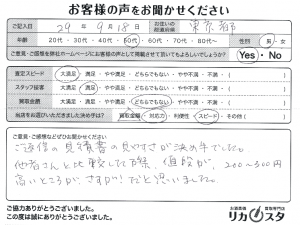 お客様の声をお聞かせください
ご記入日 29年 9月 18日 お住いの都道府県 東京都
年代 20代・30代・40代・50代・60代・70代・80代〜 性別 男・女
ご意見・ご感想を弊社ホームページにお客様の声として掲載させて頂いてもよろしいでしょうか? Yes・No
査定スピード 大満足・満足・やや満足・どちらでもない・やや不満・不満・( )
スタッフ接客 大満足・満足・やや満足・どちらでもない・やや不満・不満・( )
買取金額 大満足・満足・やや満足・どちらでもない・やや不満・不満・( )
当店をお選びいただきました決め手は? 買取金額・対応力・利便性・スピード・その他( )
ご意見・ご感想などぜひお聞かせください。
ご返信の見積書の見やすさが決め手でした。
他者さんと比較した際、値段が、200〜300円
高いところが、さすが!だと思いました。
ご協力ありがとうございました。
この度は誠にありがとうございました。
お酒買取 買取専門店
リカスタ